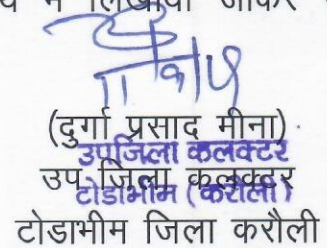 में लिखाया जाकर
(दुर्गा प्रसाद मीना)
उपजिला कलक्टर
उप जिला कलक्टर
टोडाभीम (करौली)
टोडाभीम जिला करौली